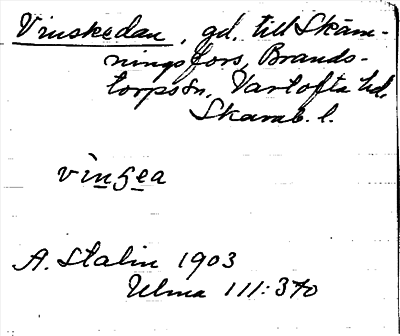 Vinskedan, gd. till Skäm-
ningsfors, Brands-
torps sn, Vartofta hd,
Skarab. l.
vìnʂea
A. Stalin 1903
Ulma 111:370